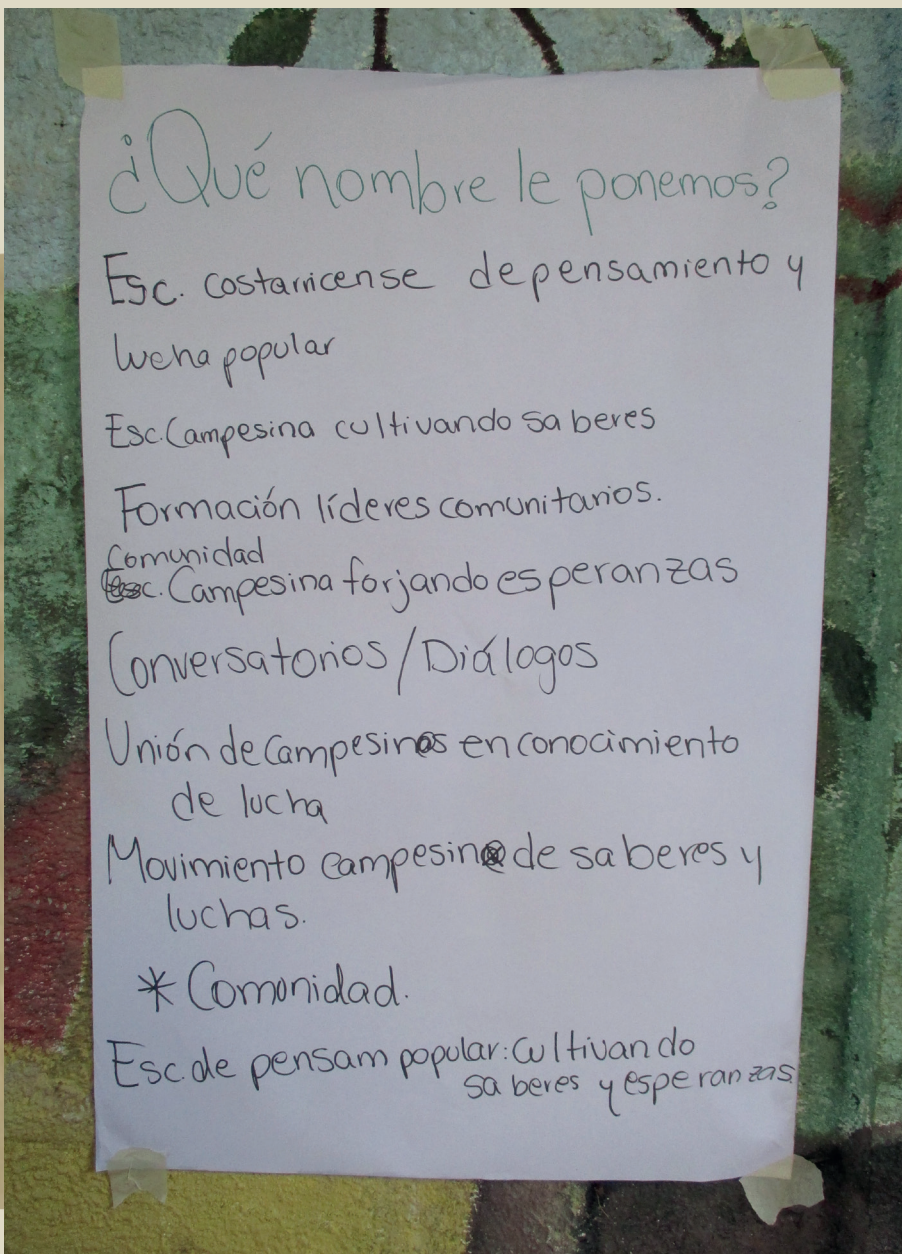 ¿Qué nombre le ponemos?
Esc. costarricense de pensamiento y
lucha popular
Esc. Campesina cultivando saberes
Formación líderes comunitarios.
Comunidad
Esc. Campesina forjando esperanzas
Conversatorios / Diálogos
Unión de Campesinos en conocimiento
de lucha
Movimiento campesin@ de saberes y
luchas.
* Comunidad.
Esc. de pensam popular: Cultivando
saberes y esperanzas.